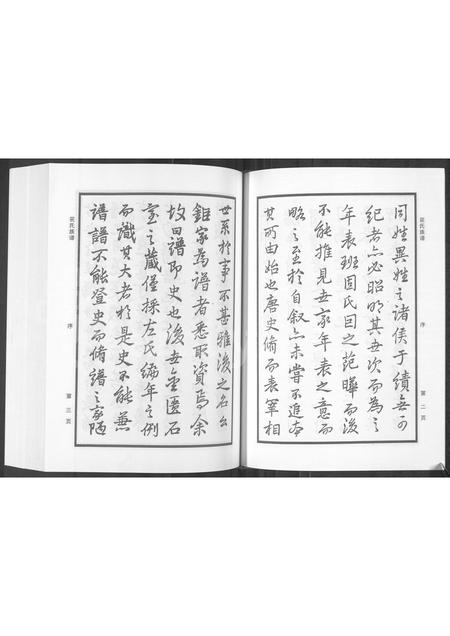 同姓異姓之諸侯于績無可
紀者亦必昭明其世次而為之
年表班固氏因之范曄而後
不能推見世家年表之意而
略之至於自叙亦未嘗不追本
其所由始也唐史脩而表宰相
序
第二页
世系於事不甚雅後之名公
鉅家為譜者悉取資焉余
故曰譜即史也後世金匱石
室之藏僅採左氏編年之例
而識其大者於是史不能兼
譜譜不能登史而脩譜之家陋
氏族谱
序
第三页